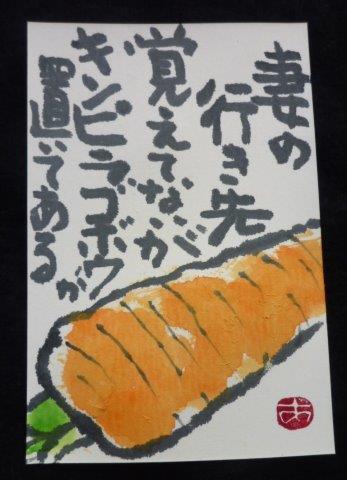 妻の
行き先
覚えてないが
キンピラゴボウが
置いてある